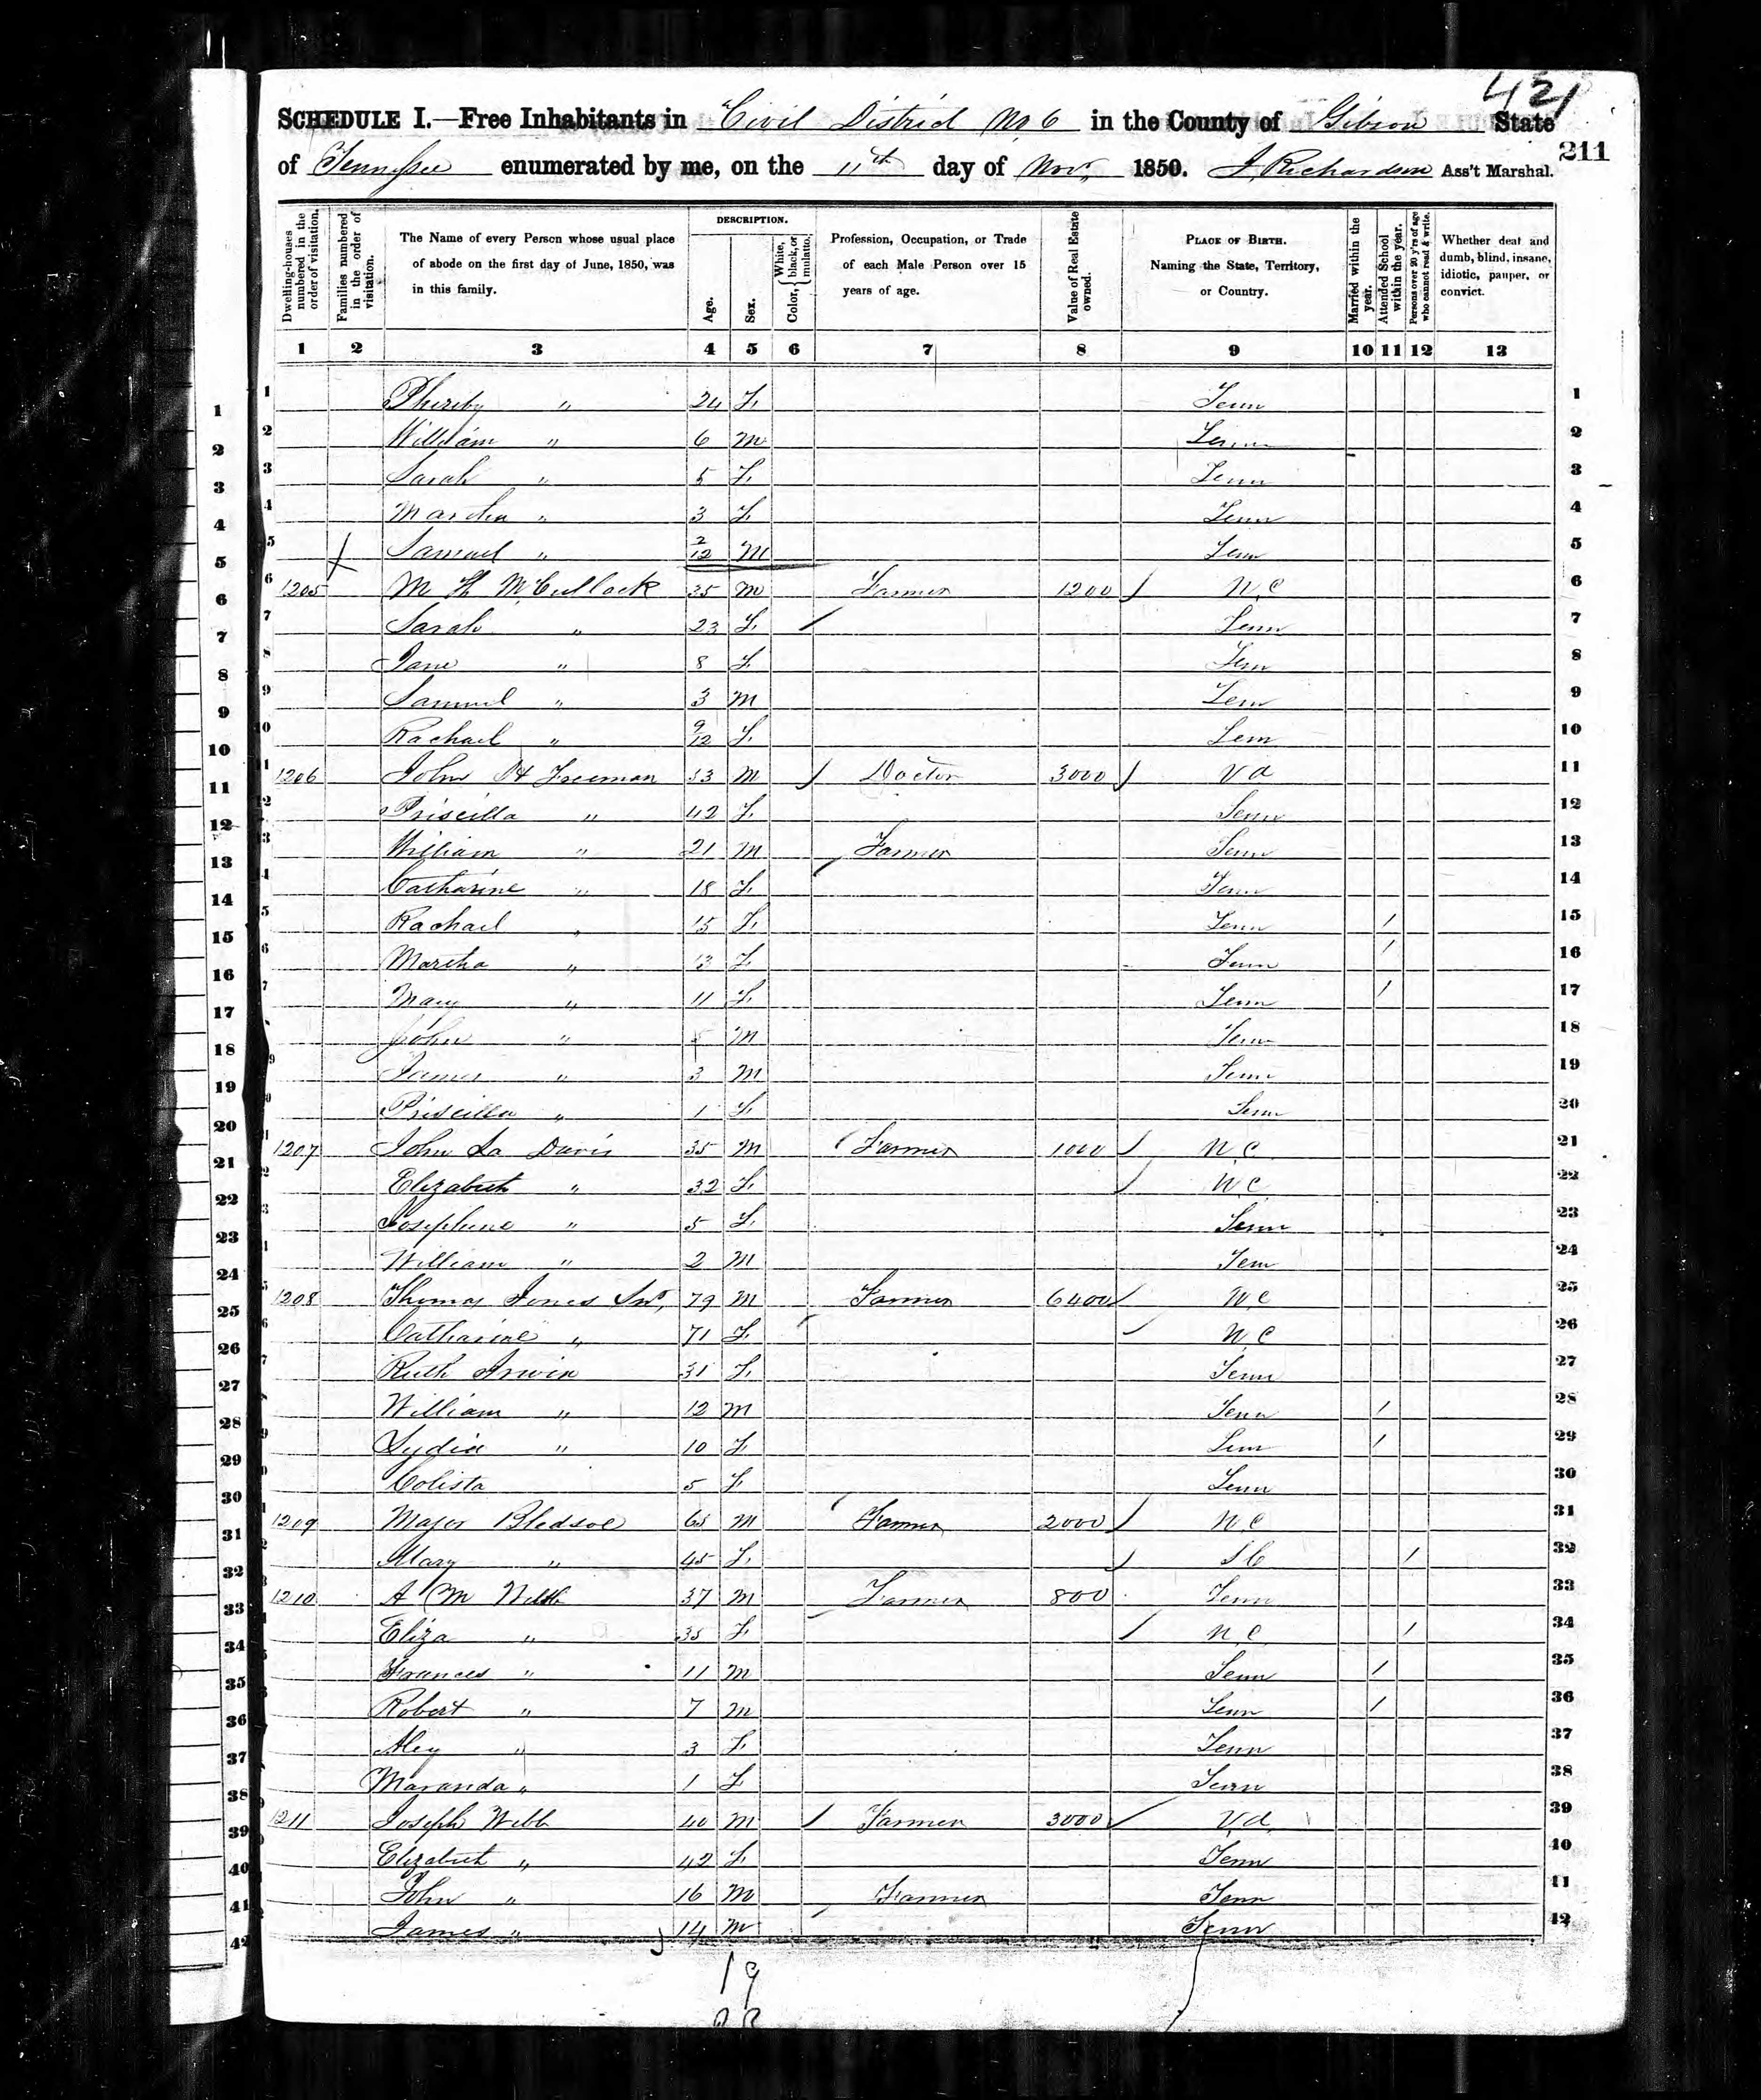 421
SCHEDULE I.—Free Inhabitants in Civil District No 6 in the County of Gibson State
of Tennessee enumerated by me, on the 11th day of Nov, 1850. J. Richardson Ass't Marshal.
211
Dwelling-houses numbered in the order of visitation.
Families numbered in the order of visitation.
The Name of every Person whose usual place of abode on the first day of June, 1850, was in this family.
DESCRIPTION.
Age.
Sex.
Color, { White, black, or mulatto.
Profession, Occupation, or Trade of each Male Person over 15 years of age.
Value of Real Estate owned.
PLACE OF BIRTH. Naming the State, Territory, or Country.
Married within the year.
Attended School within the year.
Persons over 20 y'rs of age who cannot read & write.
Whether deaf and dumb, blind, insane, idiotic, pauper, or convict.
1 2 3 4 5 6 7 8 9 10 11 12 13
1 Phereby " 24 F. Tenn 1
2 William " 6 M Tenn 2
3 Sarah " 5 F. Tenn 3
4 " 3 F Tenn 4
5 Samuel " 2/12 M Tenn 5
6 1205 M H McCullock 35 M Farmer 1200 N.C 6
7 Sarah " 23 F. Tenn 7
8 Jane " 8 F. Tenn 8
9 Samuel " 3 M Tenn 9
10 Rachael " 9/12 F. Tenn 10
11 1206 John H Freeman 53 M Doctor 3000 Va 11
12 Priscilla " 42 F. Tenn 12
13 William " 21 M Farmer Tenn 13
14 Catharine " 18 F. Tenn 14
15 Rachael " 15 F. Tenn / 15
16 Martha " 13 F. Tenn / 16
17 Mary " 11 F. Tenn / 17
18 John " 5 M Tenn 18
19 James " 3 M Tenn 19
20 Priscilla " 1 F. Tenn 20
21 1207 John Davis 35 M Farmer 1000 N.C 21
22 Elizabeth " 32 F. N.C. 22
23 Josephine " 5 F. Tenn 23
24 William " 2 M Tenn 24
25 1208 Thomas Jones Snr, 79 M Farmer 6400 N.C 25
26 Catharine " 71 F. N.C 26
27 Ruth Irwin 31 F. Tenn 27
28 William " 12 M Tenn / 28
29 Lydia " 10 F. Tenn / 29
30 Colista 5 F. Tenn 30
31 1209 Major Bledsoe 65 M Farmer 2000 N.C 31
32 Mary " 45 F. S.C / 32
33 1210 A M Webb 37 M Farmer 800 Tenn 33
34 Eliza " 35 F. N.C. / 34
35 Frances " 11 M Tenn / 35
36 Robert " 7 M Tenn / 36
37 Aley " 3 F. Tenn 37
38 Maranda " 1 F Tenn 38
39 1211 Joseph Webb 40 M Farmer 3000 Va. 39
40 Elizabeth " 42 F Tenn 40
41 John " 16 M Farmer Tenn 41
42 James " 14 M Tenn 42
19